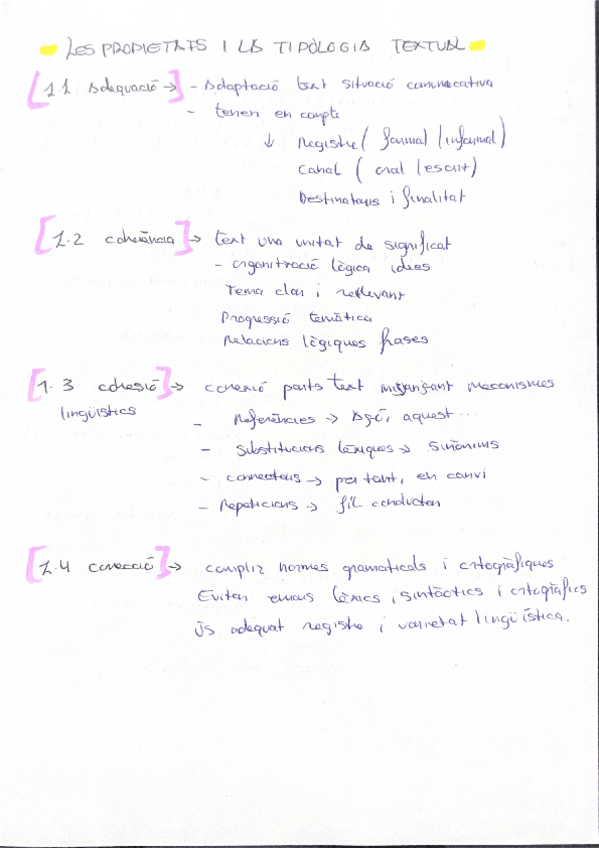 LES PROPIETATS I LA TIPOLOGIA TEXTUAL
[1.1 Adequació] → - Adaptació text situació comunicativa
- tenen en compte
↓ Registre ( formal / informal )
Canal ( oral / escrit )
Destinataris i finalitat
[1.2 coherència] → text una unitat de significat
- organització lògica idees
Tema clar i rellevant
Progressió temàtica
Relacions lògiques frases
[1.3 cohesió] → conexió parts text mitjançant mecanismes
lingüístics
- Referències → Això, aquest ...
- Substitucions lèxiques → sinònims
- connectors → per tant, en canvi
- Repeticions → fil conductor
[1.4 correcció] → complir normes gramaticals i ortogràfiques
Evitar errors lèxics, sintàctics i ortogràfics
Ús adequat registre i varietat lingüística.